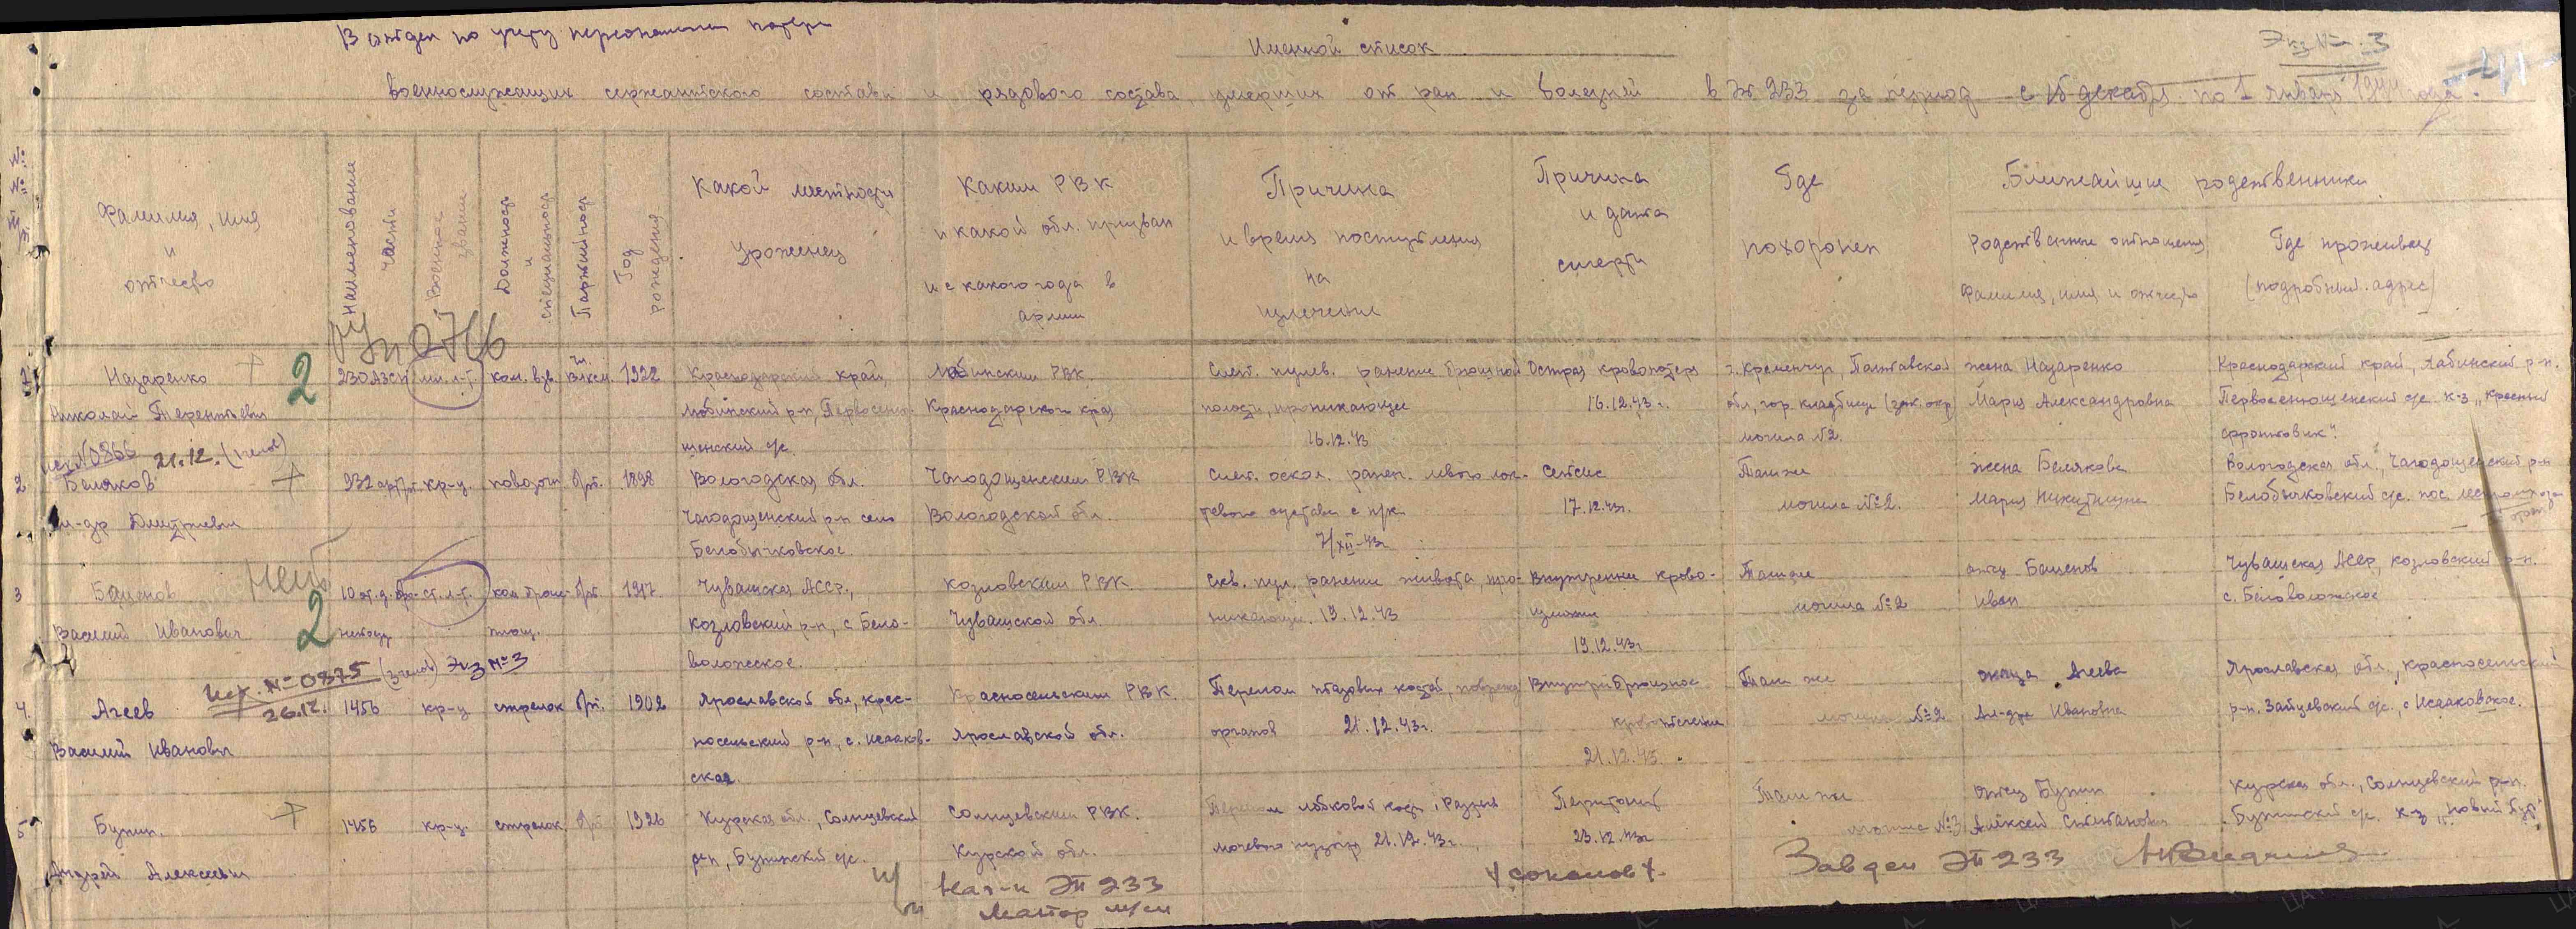 В отдел по учету персональных потерь
Экз № 3
Именной список
военнослужащих сержантского состава и рядового состава, умерших от ран и болезней в ЭГ 233 за период с 15 декабря по 1 января 1944 года.
№№ Фамилия, имя и отчество
Наименование части
Военное звание
Должность и специальность
Партийность
Год рождения
Какой местности уроженец
Каким РВК и какой обл. призван и с какого года в армии
Причина и время поступления на излечение
Причина и дата смерти
Где похоронен
Ближайшие родственники
Родственные отношения, фамилия, имя и отчество
Где проживает (подробный адрес)
2
Назаренко 230 АЗСП мл. л-т. ком. взв. чл. ВЛКСМ. 1922 Краснодарский край, Лабинским РВК. Слеп. пулев. ранение брюшной Острая кровопотеря г. Кременчуг, Полтавской жена Назаренко Краснодарский край, Лабинский р-н.
Николай Терентьевич Лабинский р-н, Первосиню- Краснодарского края полости, проникающее 16.12.43 г. обл, гор. кладбище Мария Александровна Первосинюшенский с/с к-з „Красный
щенский с/с 16.12.43 могила №2. фронтовик".
исх №0866 21.12.
2 Беляков кр-ц. повозочн. б/п. 1898 Вологодская обл. Чагодощенским РВК Слеп. оскол. ранен. левого лок- Сепсис Там же жена Белякова Вологодская обл., Чагодощенский р-н
Ал-др Дмитриевич Чагодощенский р-н село Вологодской обл. тевого сустава с п/к 17.12.43г. могила №2. Мария Никитична Белобычковский с/с. пос.
Белобычковское. 7/XII-43г
Нет
3 Баценов ст. л-т. б/п. 1917 Чувашская АССР, Козловским РВК Скв. пул. ранение живота, про- Внутреннее крово- Там же отец Баценов Чувашская АССР, Козловский р-н.
2
Василий Иванович Козловский р-н, с. Бело- Чувашской обл. никающее. 19.12.43 излияние могила №2 Иван с. Беловоложское
воложское. 19.12.43г
Исх. №0875 Экз №3
26.12.
4. Агеев 1456 кр-ц стрелок б/п. 1902 Ярославской обл, Крас- Красносельским РВК. Перелом тазовых костей, поврежд Внутрибрюшное Там же жена Агеева Ярославская обл., Красносельский
Василий Иванович носельский р-н, с. Исааков- Ярославской обл. органов 21.12.43г. кровотечение могила №2 Ал-дра Ивановна р-н. Зайцевский с/с, с Исааковское.
ское 21.12.43
5 Бунин. 1456 кр-ц. стрелок. б/п 1926 Курская обл., Солнцевский Солнцевским РВК. Перелом лобковой кости, разрыв Перитонит Там же отец Бунин Курская обл., Солнцевский р-н.
Андрей Алексеевич р-н, Бунинский с/с. Курской обл. мочевого пузыря 21.12.43г. 23.12.43г могила №3 Алексей Степанович Бунинский с/с. к-з „Новый
Нач-к ЭГ 233
Майор м/сл /Соколов/.
Завдел ЭГ 233